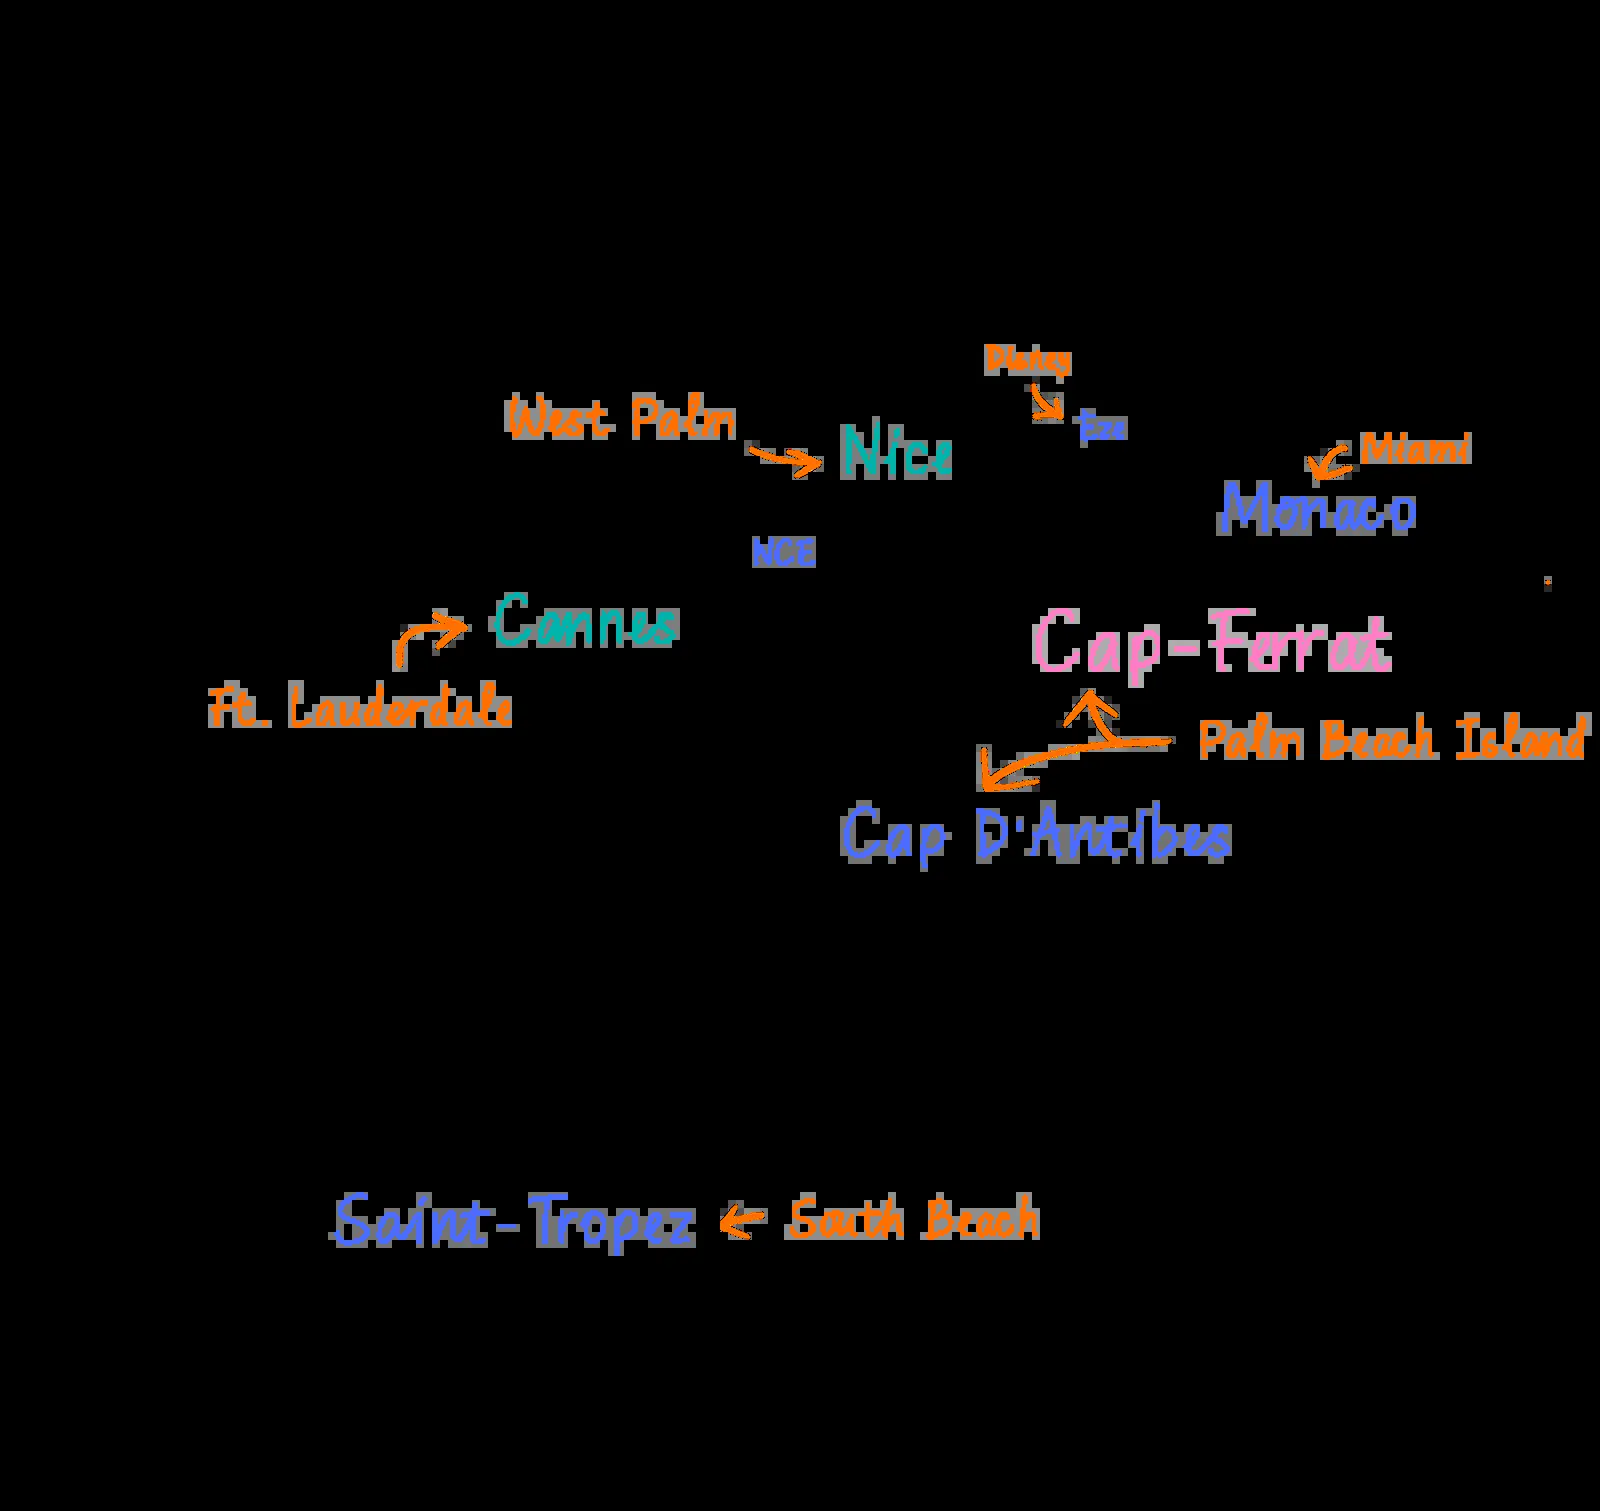 Disney
West Palm
Nice
Eze
Miami
Monaco
NCE
Cannes
Cap-Ferrat
Ft. Lauderdale
Palm Beach Island
Cap D'Antibes
Saint-Tropez
South Beach